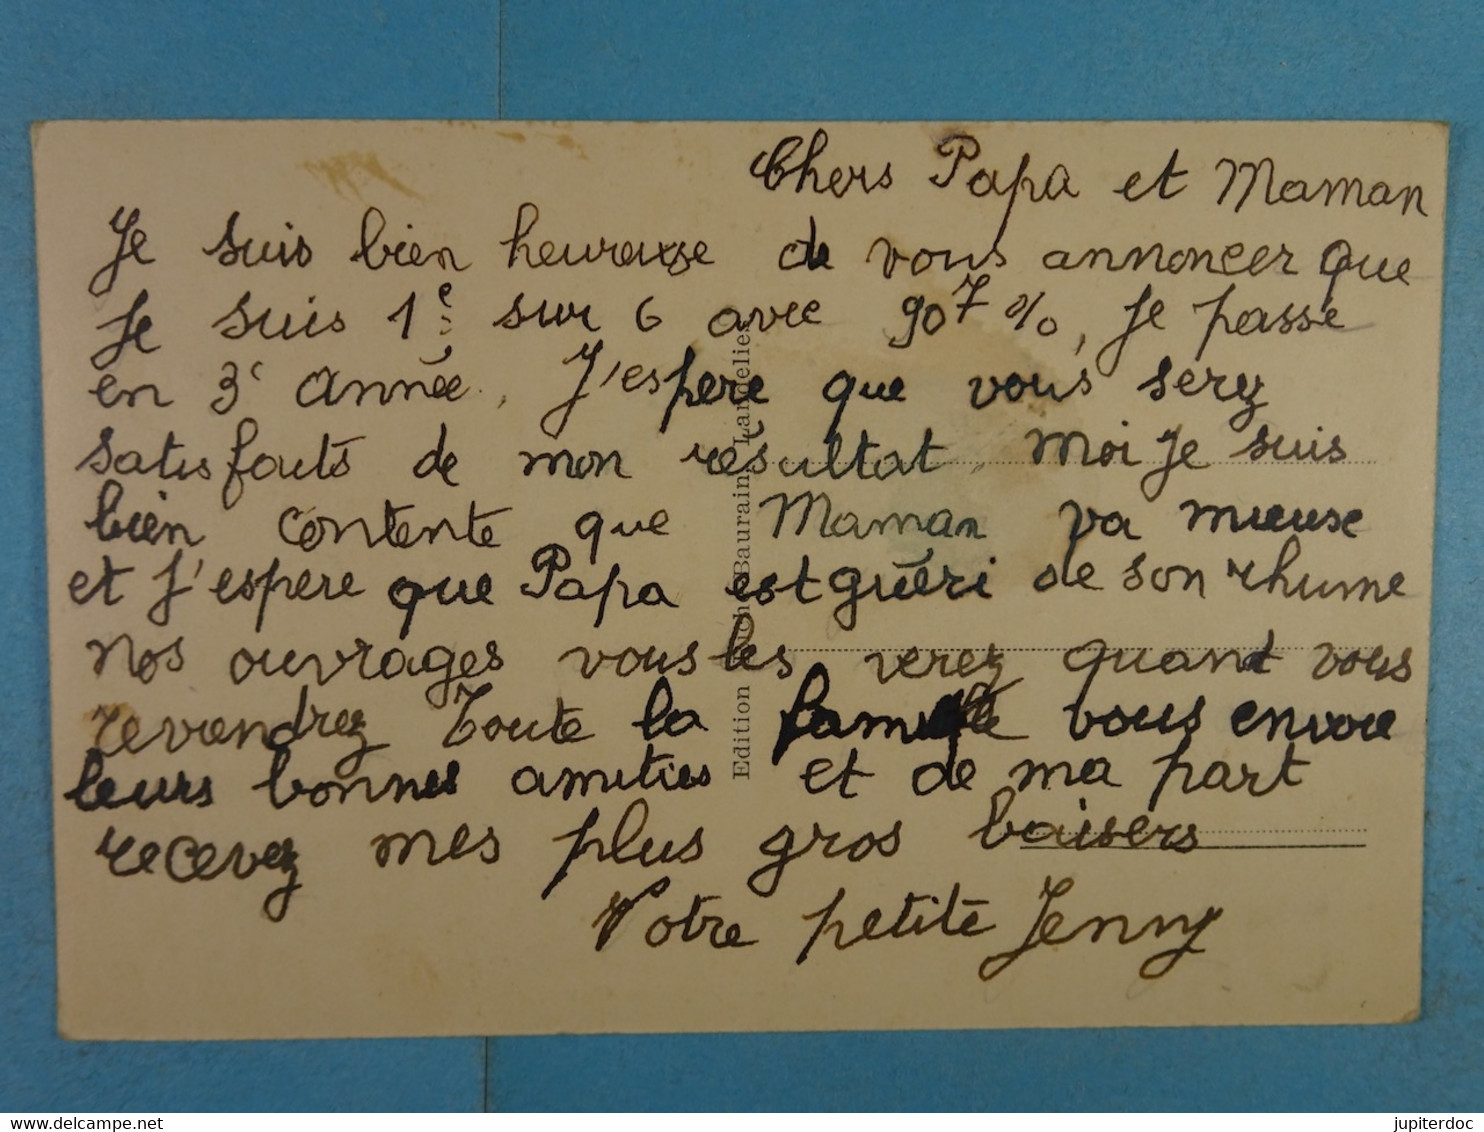 Chers Papa et Maman
Je suis bien heureuse de vous annoncer que
Je suis 1e sur 6 avec 90 7 %, Je passe
en 3e année. J'espere que vous serez
satisfaits de mon résultat. Moi Je suis
bien contente que Maman va mieuse
et J'espere que Papa est guéeri de son rhume
Nos ouvrages vous les verez quand vous
revendrez Toute la famille vous envoie
leurs bonnes amities et de ma part
recevez mes plus gros baisers
Votre petite Jenny
Edition Baurain, Landelies
jupiterdoc